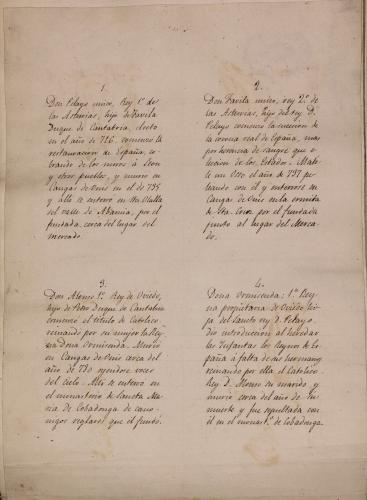 1.
Don Pelayo unico, Rey 1º de
las Asturias, hijo de Favila
Duque de Cantabria, electo
en el año de 716, comenzo la
restauracion de España, co-
brando de los moros a Leon
y otros pueblos, y murio en
Cangas de Onis en el de 735
y alli se enterro en Sta Olalla
del valle de Abamia, por el
fundada, cerca del lugar del
mercado.
2.
Don Favila unico, rey 2º de
las Asturias, hijo del rey D.
Pelayo comenzo la sucesion de
la corona real de España, mas
por herencia de sangre que e-
leccion de los Estados. Mato-
le un Oso el año de 737 pe-
leando con el y enterrose en
Cangas de Onis en la ermita
de Sta. Cruz por el fundada
junto al lugar del Merca-
do.
3.
Don Alonso 1º Rey de Oviedo,
hijo de Petro Duque de Cantabria
comenzo el titulo de Catolico
reinando por su mujer la Rey-
na Dona Ormisenda. Murio
en Cangas de Onis cerca del
año de 750 oyendose voces
del cielo. Alli se enterro en
el monasterio de Sancta Ma-
ria de Cobadonga de cano-
nigos reglares que el fundó.
4.
Dona Ormisenda: 1ª Rey-
na propietaria de Oviedo hi-
ja del sancto rey d. Pelayo
dio introduccion al heredar
las Infantas los Reynos de Es-
paña á falta de sus hermanos
reinando por ella el Catolico
Rey d. Alonso su marido, y
murio cerca del año de su
muerte y fue sepultada con
él en el monastº de Cobadonga.